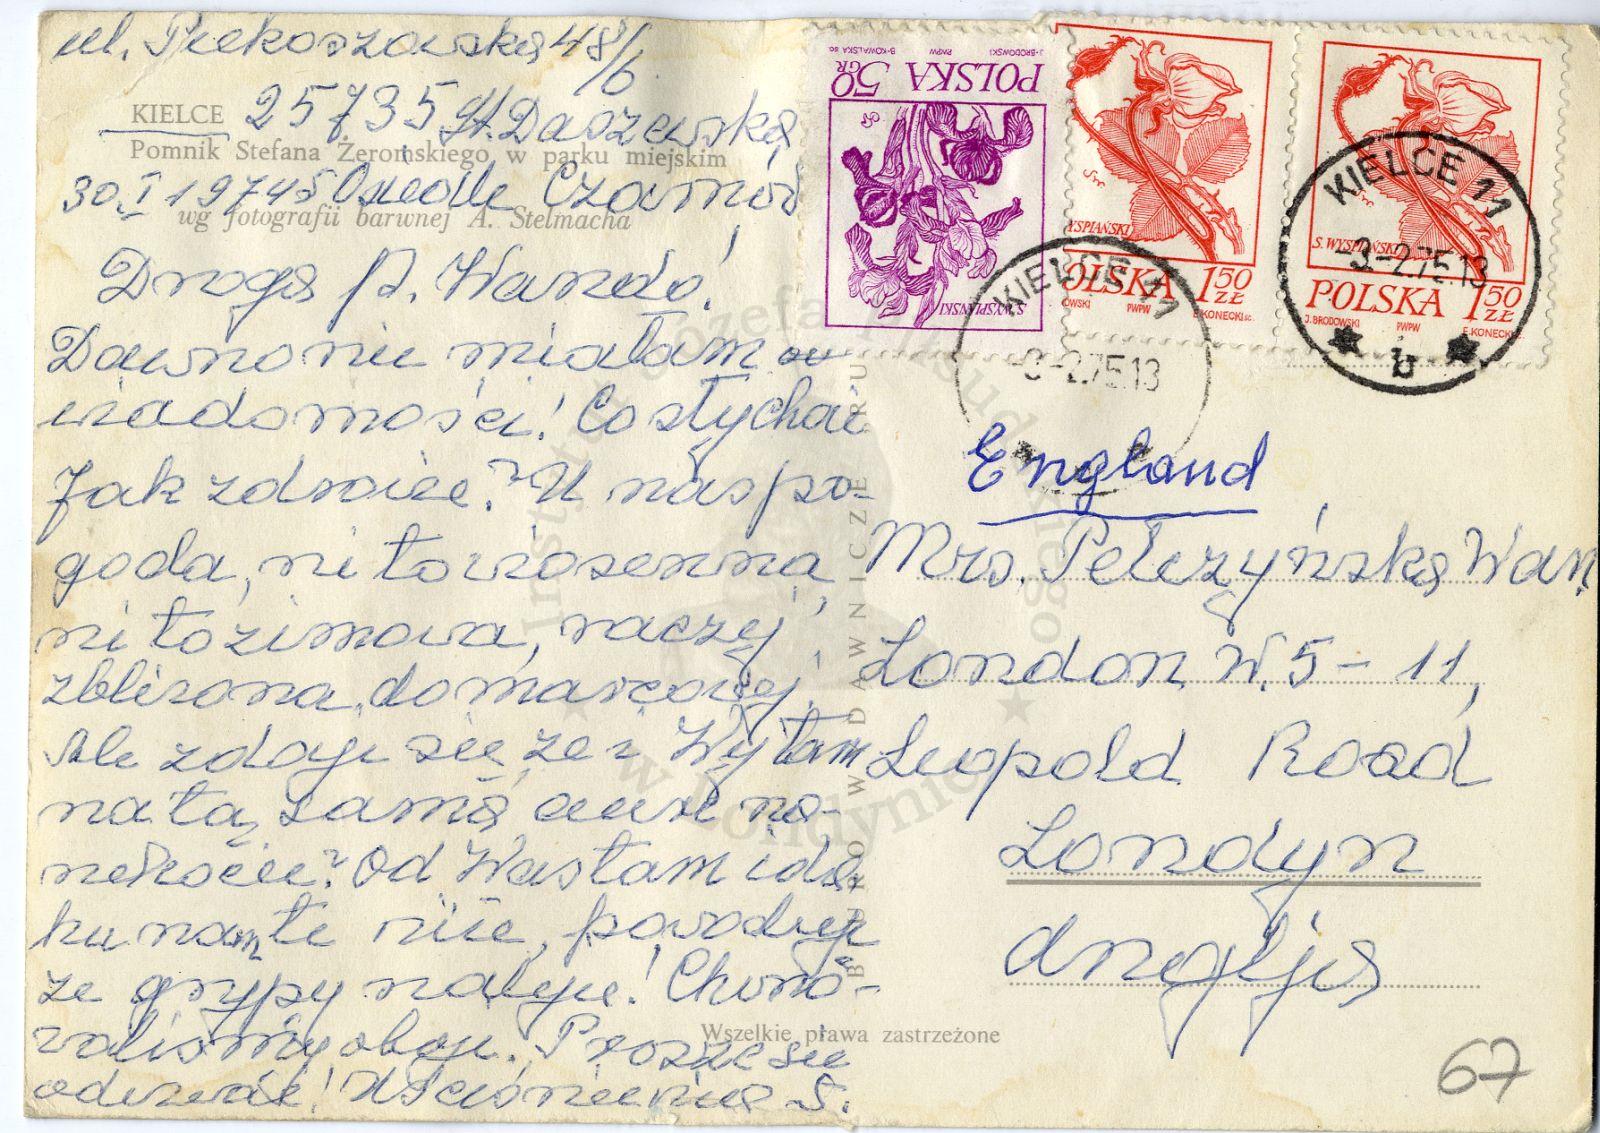 ul. Piekoszowska 48/6
KIELCE 25735 St. Daszewska
Pomnik Stefana Żeromskiego w parku miejskim
30.I 1975 Osiedle Czarnów
wg fotografii barwnej A. Stelmacha
Droga P. Wando!
Dawno nie miałam
wiadomości! Co słychać
Jak zdrowie? U nas po-
goda, ni to wiosenna,
ni to zimowa, raczej
zbliżona do marcowej,
Ale zdaje się że i Wy tam
na tą samą aurę na-
rzekacie? Od Was tam idą
ku nam te niże, powodują
że grypy naleje! Choro-
waliśmy oboje. Proszę się
odezwać! Uściśnienia S.
50 GR POLSKA
J.BRODOWSKI PWPW B.KOWALSKA sc.
S. WYSPIAŃSKI
WYSPIAŃSKI
POLSKA 1.50 ZŁ
OWSKI PWPW E.KONECKI sc.
S. WYSPIAŃSKI
POLSKA 1.50 ZŁ
J.BRODOWSKI PWPW E.KONECKI sc.
KIELCE 11
-3.-2.75.13
KIELCE 11
-3.-2.75.13
b
England
Mrs. Pełczyńska Wan.
London W.5-11,
Leopold Road
Londyn
Anglja
BIURO WYDAWNICZE RUCH
Instytut Józefa Piłsudskiego
w Londynie
Wszelkie prawa zastrzeżone
67